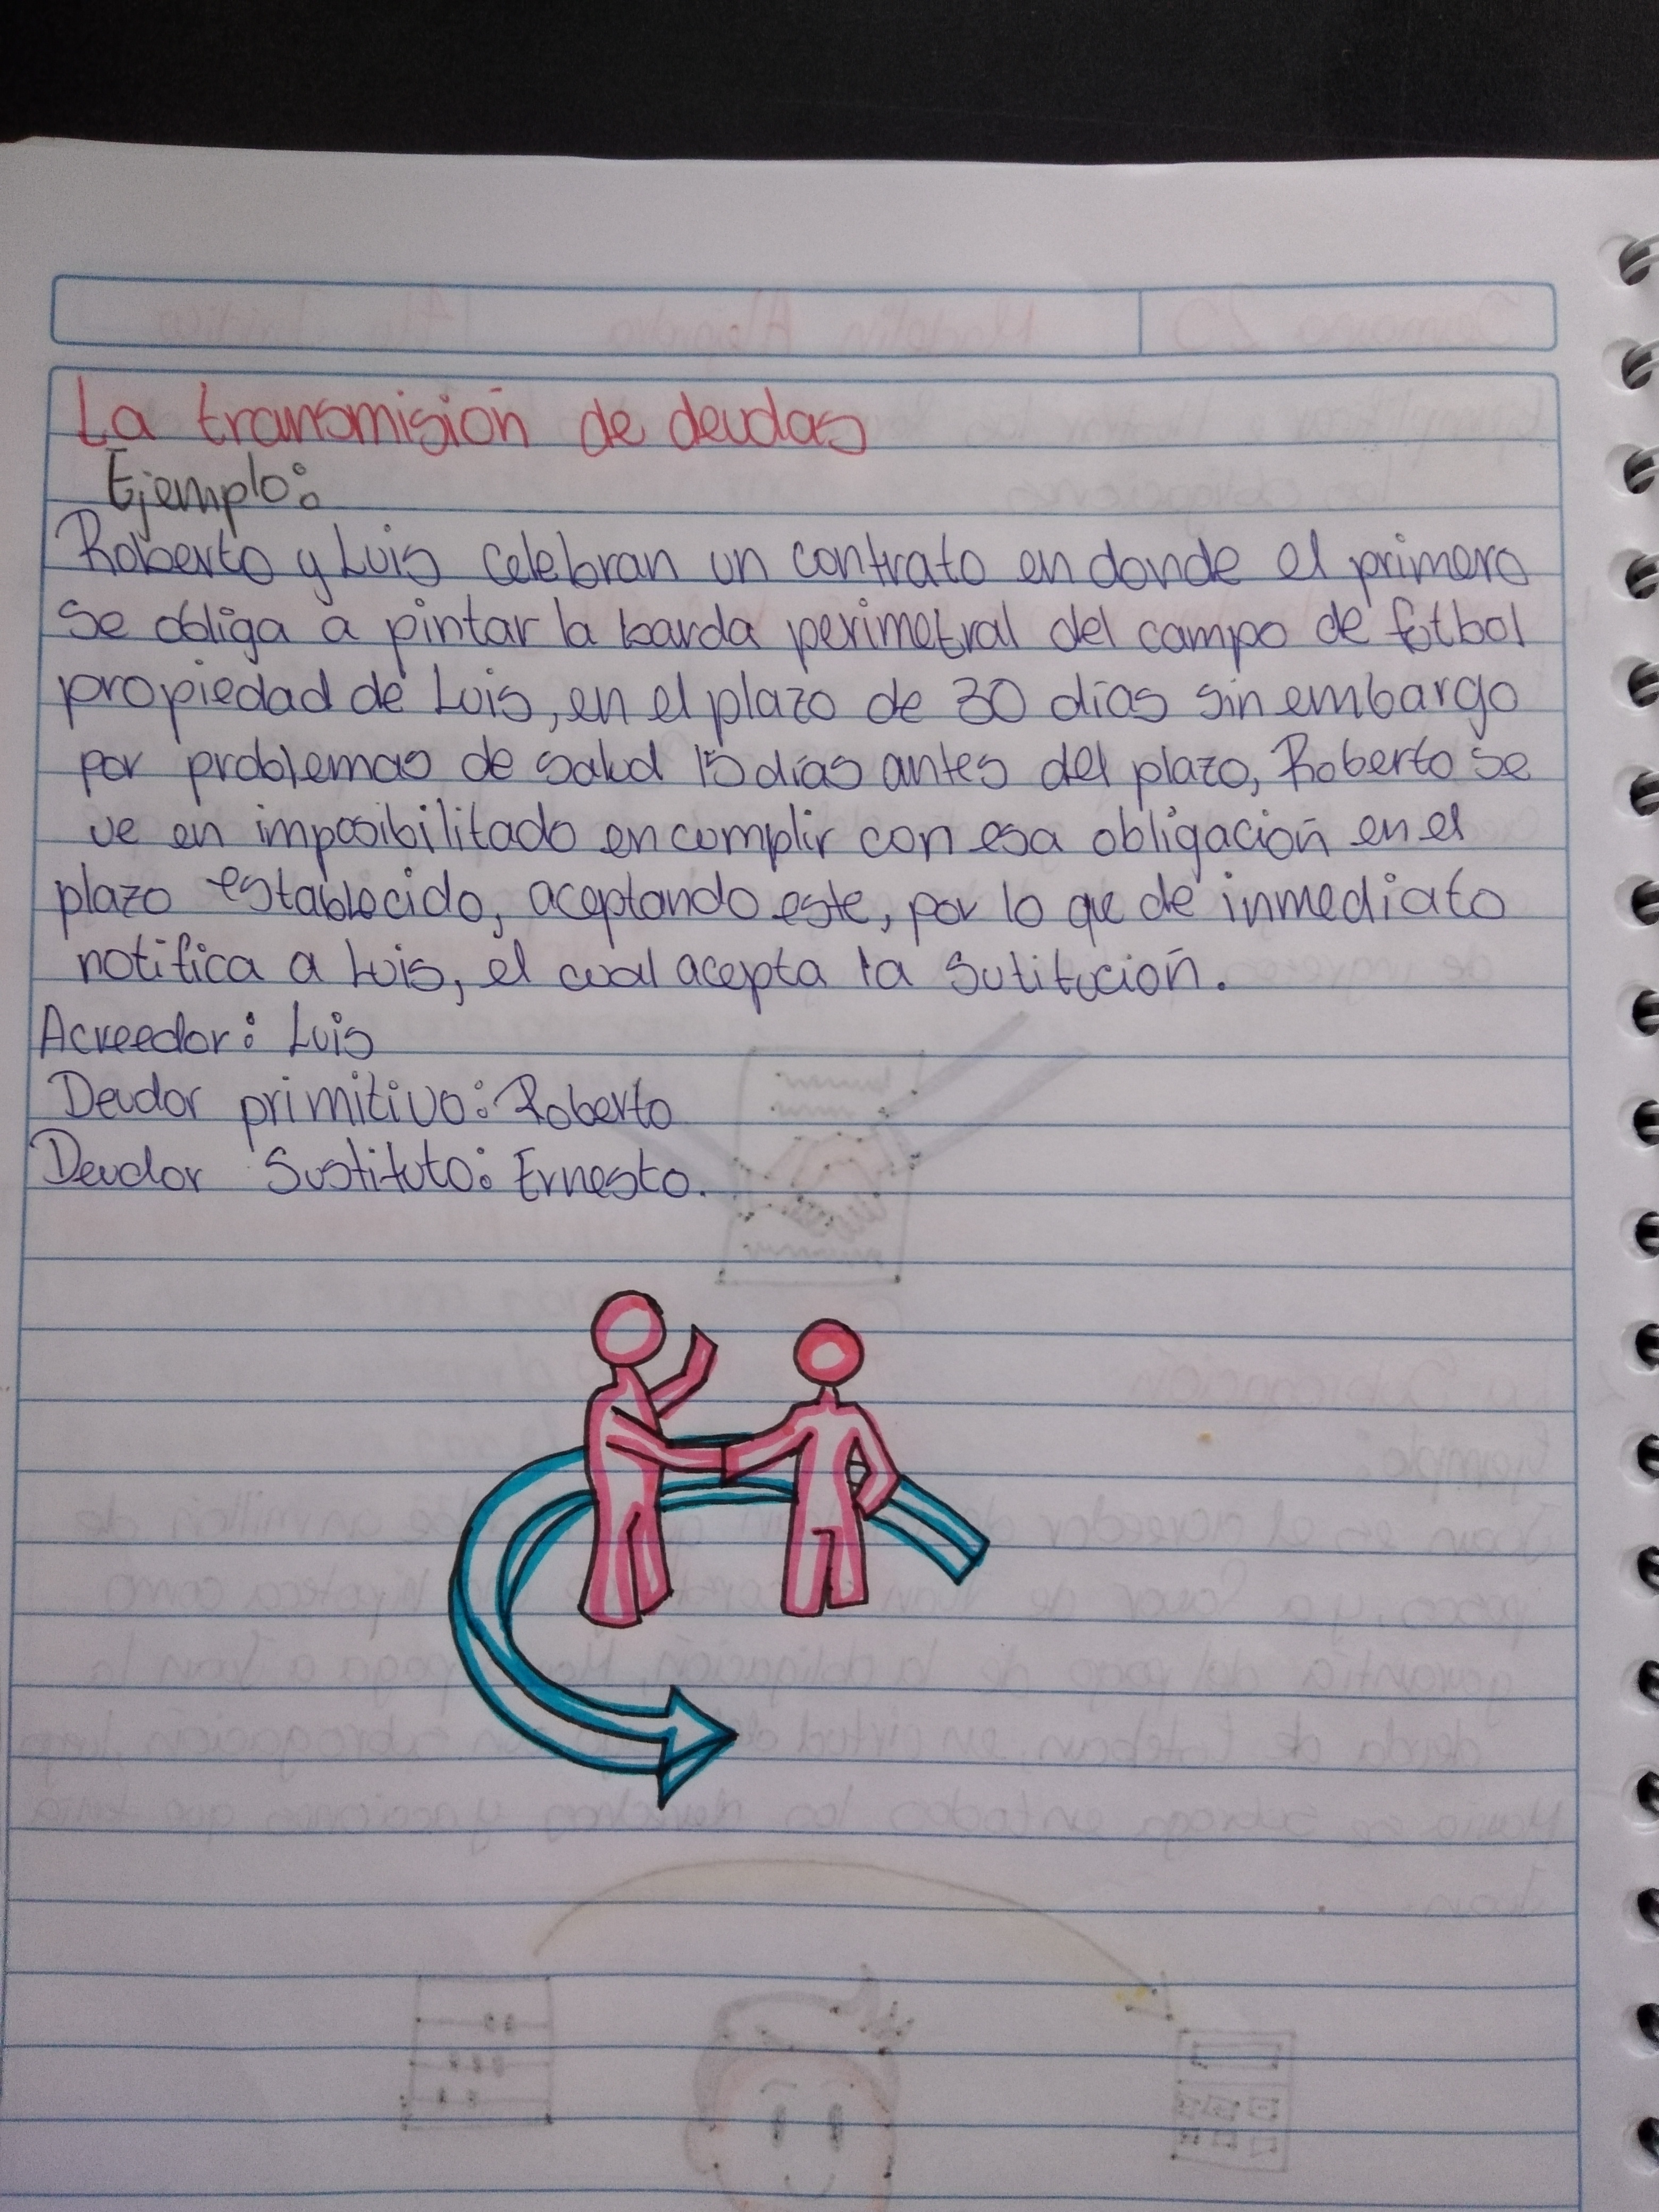 La transmisión de deudas
Ejemplo:
Roberto y Luis celebran un contrato en donde el primero
se obliga a pintar la barda perimetral del campo de fútbol
propiedad de Luis, en el plazo de 30 días sin embargo
por problemas de salud 15 días antes del plazo, Roberto se
ve en imposibilitado en cumplir con esa obligación en el
plazo establecido, aceptando este, por lo que de inmediato
notifica a Luis, el cual acepta la sutitución.
Acreedor: Luis
Deudor primitivo: Roberto
Deudor Sustituto: Ernesto.